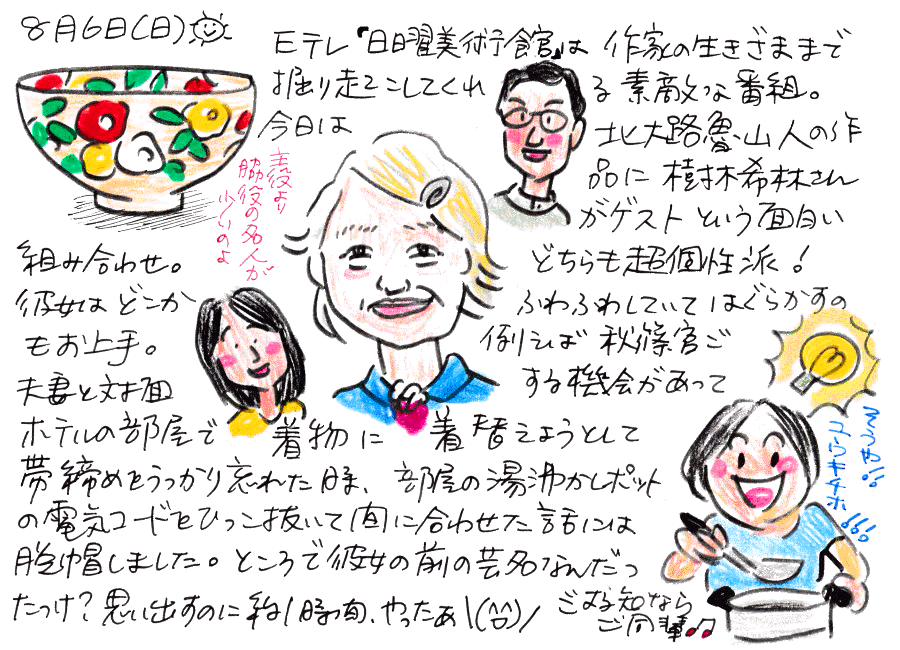 8月6日(日)
Eテレ『日曜美術館』は 作家の生きざままで
掘り起こしてくれ る素敵な番組。
今日は 北大路魯山人の作
品に 樹木希林さん
がゲストという面白い
組み合わせ。 どちらも超個性派！
彼女は どこか ふわふわしていて はぐらかすの
もお上手。 例えば 秋篠宮ご
夫妻と対面 する機会があって
ホテルの部屋で 着物に 着替えようとして
帯締めをうっかり忘れた時、部屋の湯沸かしポット
の電気コードをひっこ抜いて間に合わせた話には
脱帽しました。ところで彼女の前の芸名なんだっ
たっけ？思い出すのに約1時間、やったぁ\(^o^)/
ごぞる知なら
ご同輩♪♪
主役より
脇役の名人が
少ないのよ
そうや!!
ユウキチホ!!!